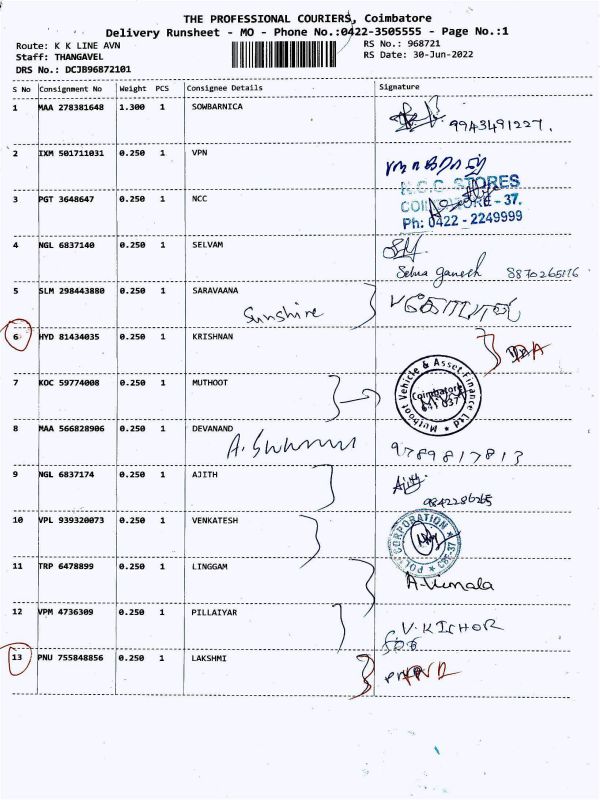 THE PROFESSIONAL COURIERS, Coimbatore
Delivery Runsheet - MO - Phone No.:0422-3505555 - Page No.:1
Route: K K LINE AVN
RS No.: 968721
Staff: THANGAVEL
RS Date: 30-Jun-2022
DRS No.: DCJB96872101
S No Consignment No Weight PCS Consignee Details Signature
1 MAA 278381648 1.300 1 SOWBARNICA
9943491227.
2 IXM 501711031 0.250 1 VPN
N.C.C. STORES
3 PGT 3648647 0.250 1 NCC
COIMBATORE - 37.
Ph: 0422 - 2249999
4 NGL 6837140 0.250 1 SELVAM
Selva Ganesh 8870265116
5 SLM 298443880 0.250 1 SARAVAANA
Sunshire
6 HYD 81434035 0.250 1 KRISHNAN
7 KOC 59774008 0.250 1 MUTHOOT
Muthoot Vehicle & Asset Finance Ltd
Coimbatore
641 037
8 MAA 566828906 0.250 1 DEVANAND
9789817813
9 NGL 6837174 0.250 1 AJITH
Ajith
9842286265
10 VPL 939320073 0.250 1 VENKATESH
POL CORPORATION
CBE-37
11 TRP 6478899 0.250 1 LINGGAM
A. Vimala
12 VPM 4736309 0.250 1 PILLAIYAR
V. KISHOR
13 PNU 755848856 0.250 1 LAKSHMI